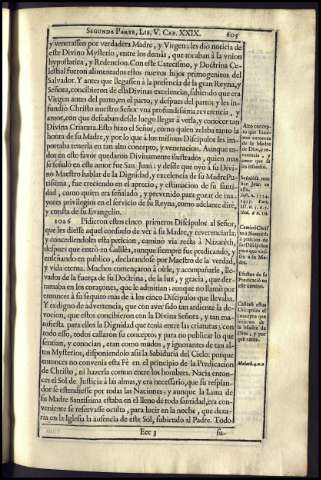 SEGUNDA PARTE, LIB. V. CAP. XXIX. 605
y venerassen por verdadera Madre, y Virgen: les dio noticia de
este Divino Mysterio, entre los demás, que tocaban à la vnion
hypostatica, y Redencion. Con este Catecismo, y Doctrina Ce-
lestial fueron alimentados estos nuevos hijos primogenitos del
Salvador. Y antes que llegassen à la presencia de la gran Reyna, y
Señora, concibieron de ella Divinas excelencias, sabiendo que era
Virgen antes del parto, en el parto, y despues del parto: y les in-
fundiò Christo nuestro Señor vna profundissima reverencia, y
amor, con que deseaban desde luego llegar à verla, y conocer tan
Divina Criatura. Esto hizo el Señor, como quien zelaba tanto la
honra de su Madre, y por lo que à los mismos Discipulos les im-
portaba tenerla en tan alto concepto, y veneracion. Aunque to-
dos en este favor quedaron Divinamente ilustrados, quien mas
se señalò en este amor fue San Juan: y desde que oyò à su Divi-
no Maestro hablar de la Dignidad, y excelencia de su Madre Pu-
rissima, fue creciendo en el aprecio, y estimacion de su santi-
dad, como quien era señalado, y prevenido para gozar de ma-
yores privilegios en el servicio de su Reyna, como adelante dirè,
y consta de su Evangelio.
1026 Pidieron estos cinco primeros Discipulos al Señor,
que les diesse aquel consuelo de ver à su Madre, y reverenciarla:
y concediendoles esta peticion, caminò via recta à Nazareth,
despues que entrò en Galilea, aunque siempre fue predicando, y
enseñando en publico, declarandose por Maestro de la verdad,
y vida eterna. Muchos començaron à oirle, y acompañarle, lle-
vados de la fuerça de su Doctrina, de la luz, y gracia, que der-
ramaba en los coraçones, que le admitian; aunque no llamò por
entonces à su sequito mas de à los cinco Discipulos que llevaba.
Y es digno de advertencia, que con aver sido tan ardiente la de-
vocion, que estos concibieron con la Divina Señora, y tan ma-
nifiesta para ellos la Dignidad que tenia entre las criaturas; con
todo esso, todos callaron su concepto; y para no publicar lo que
sentian, y conocian, eran como mudos, y ignorantes de tan al-
tos Mysterios, disponiendolo assi la Sabiduria del Cielo: porque
entonces no convenia esta Fè en el principio de la Predicacion
de Christo, ni hazerla comun entre los hombres. Nacia enton-
ces el Sol de Justicia à las almas, y era necessario, que su resplan-
dor se estendiesse por todas las Naciones: y aunque la Luna de
su Madre Santissima estaba en el lleno de toda santidad, era con-
veniente se reservasse oculta, para lucir en la noche, que dexa-
ria en la Iglesia la ausencia de este Sol, subiendo al Padre. Todo
Eee 3 su-